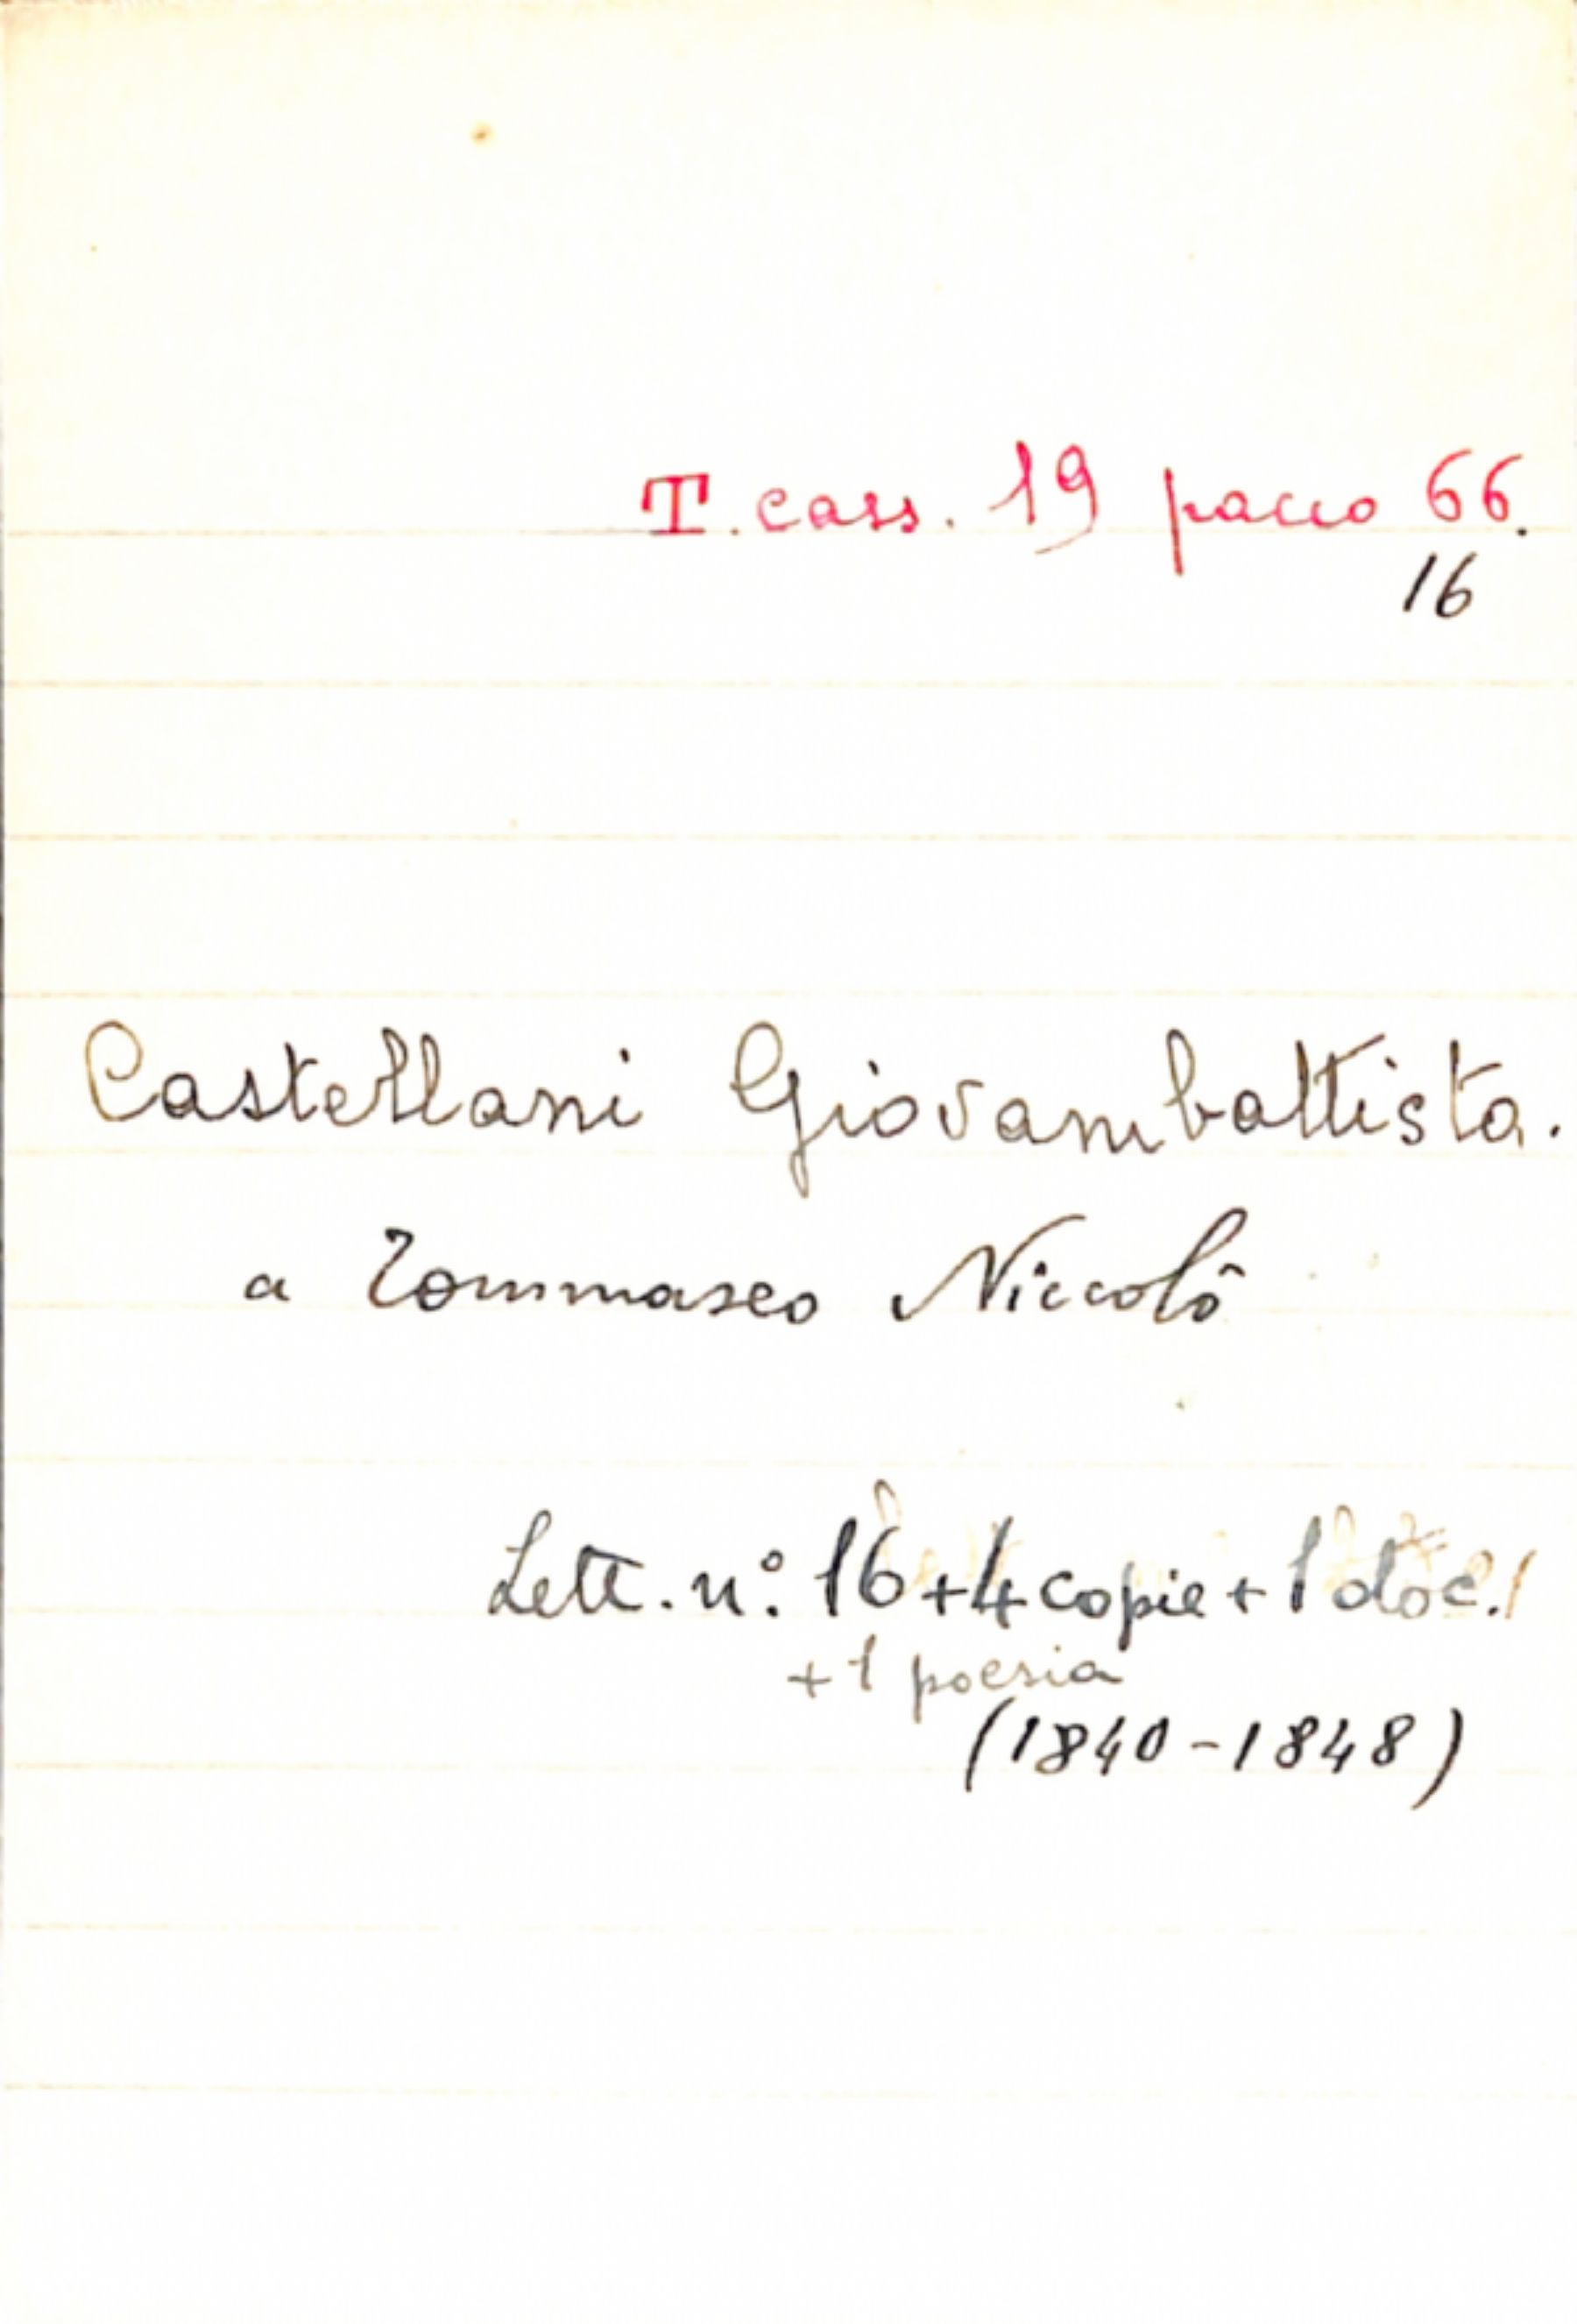 T. cass. 19 pacco 66.
16
Castellani Giovambattista.
a Tommaseo Niccolò
Lett. n°. 16 + 4 copie + 1 doc.
+ 1 poesia
(1840-1848)